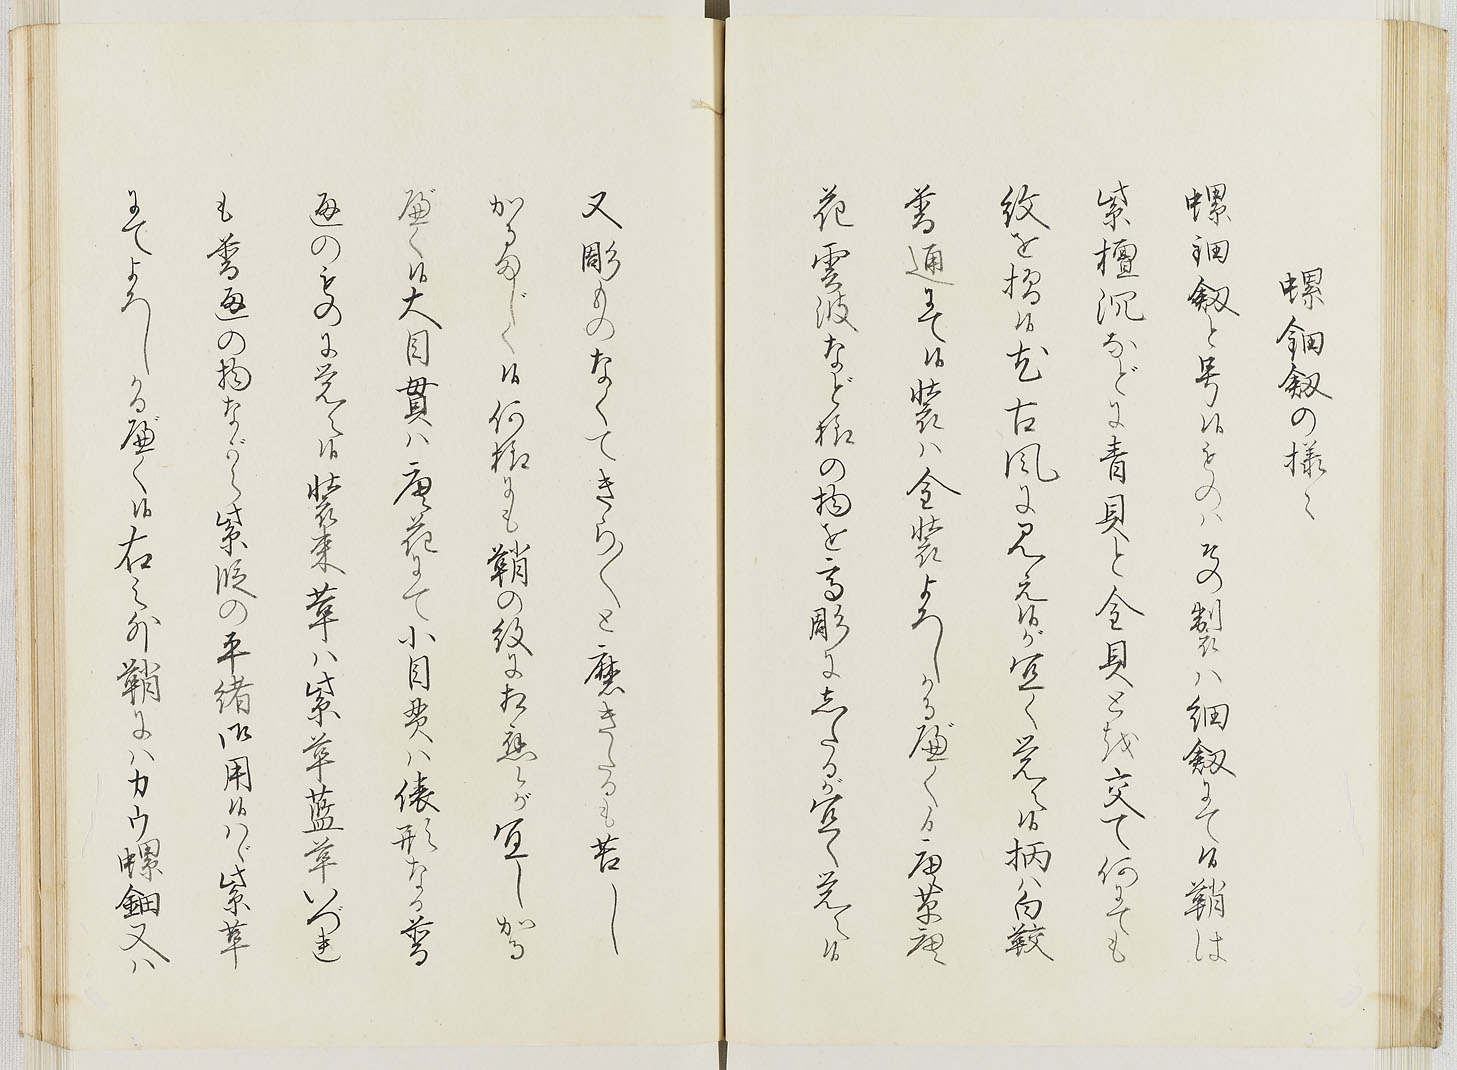 螺鈿劔の様〻
螺鈿劔と号候ものハその製ハ細劔にて候鞘は
紫檀沉などに青貝と金貝とを交て何にても
紋を摺候尤古風に见え候が宜く覚へ候柄ハ白鮫
普通にて候装ハ金装よろしかる歟く候唐草唐
花雲波など様の物を高彫にしたるが宜く覚へ候
又彫ものなくてきら〳〵と磨きたるも苦し
かるまじく候何様にも鞘の紋に相應が宜しかる
歟く候大目貫ハ唐花にて小目貫ハ俵形なる普
通のものに覚へ候装束革ハ紫革藍革いづれ
も普通の物ながら紫淡の平緒御用候ハヾ紫革
にてよろしかる歟く候右之外鞘にハカウ螺鈿又ハ